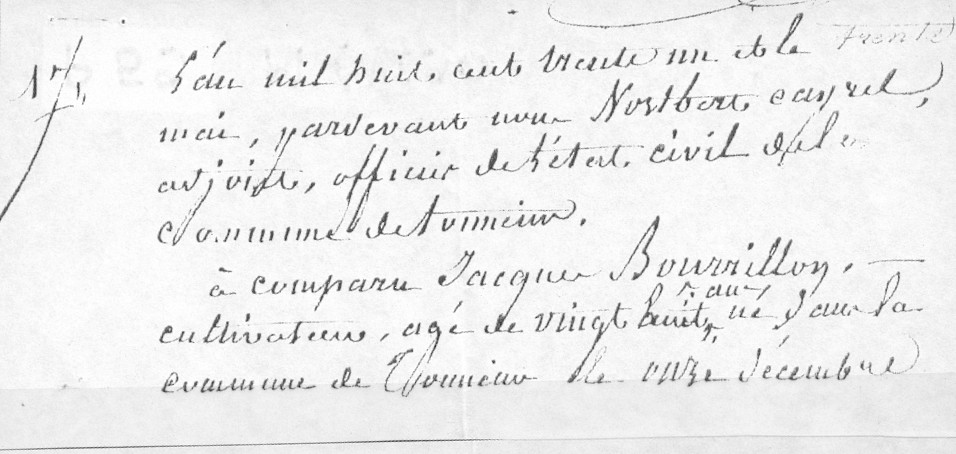 L'an mil huit cent trente un et le trente
mai, pardevant nous Norbert Cayrel,
adjoint, officier de l'état civil de la
commune de Tonneins.
à comparu Jacques Bourrillon,
cultivateur, agé de vingt huit ans, né dans la
commune de Tonneins le onze décembre